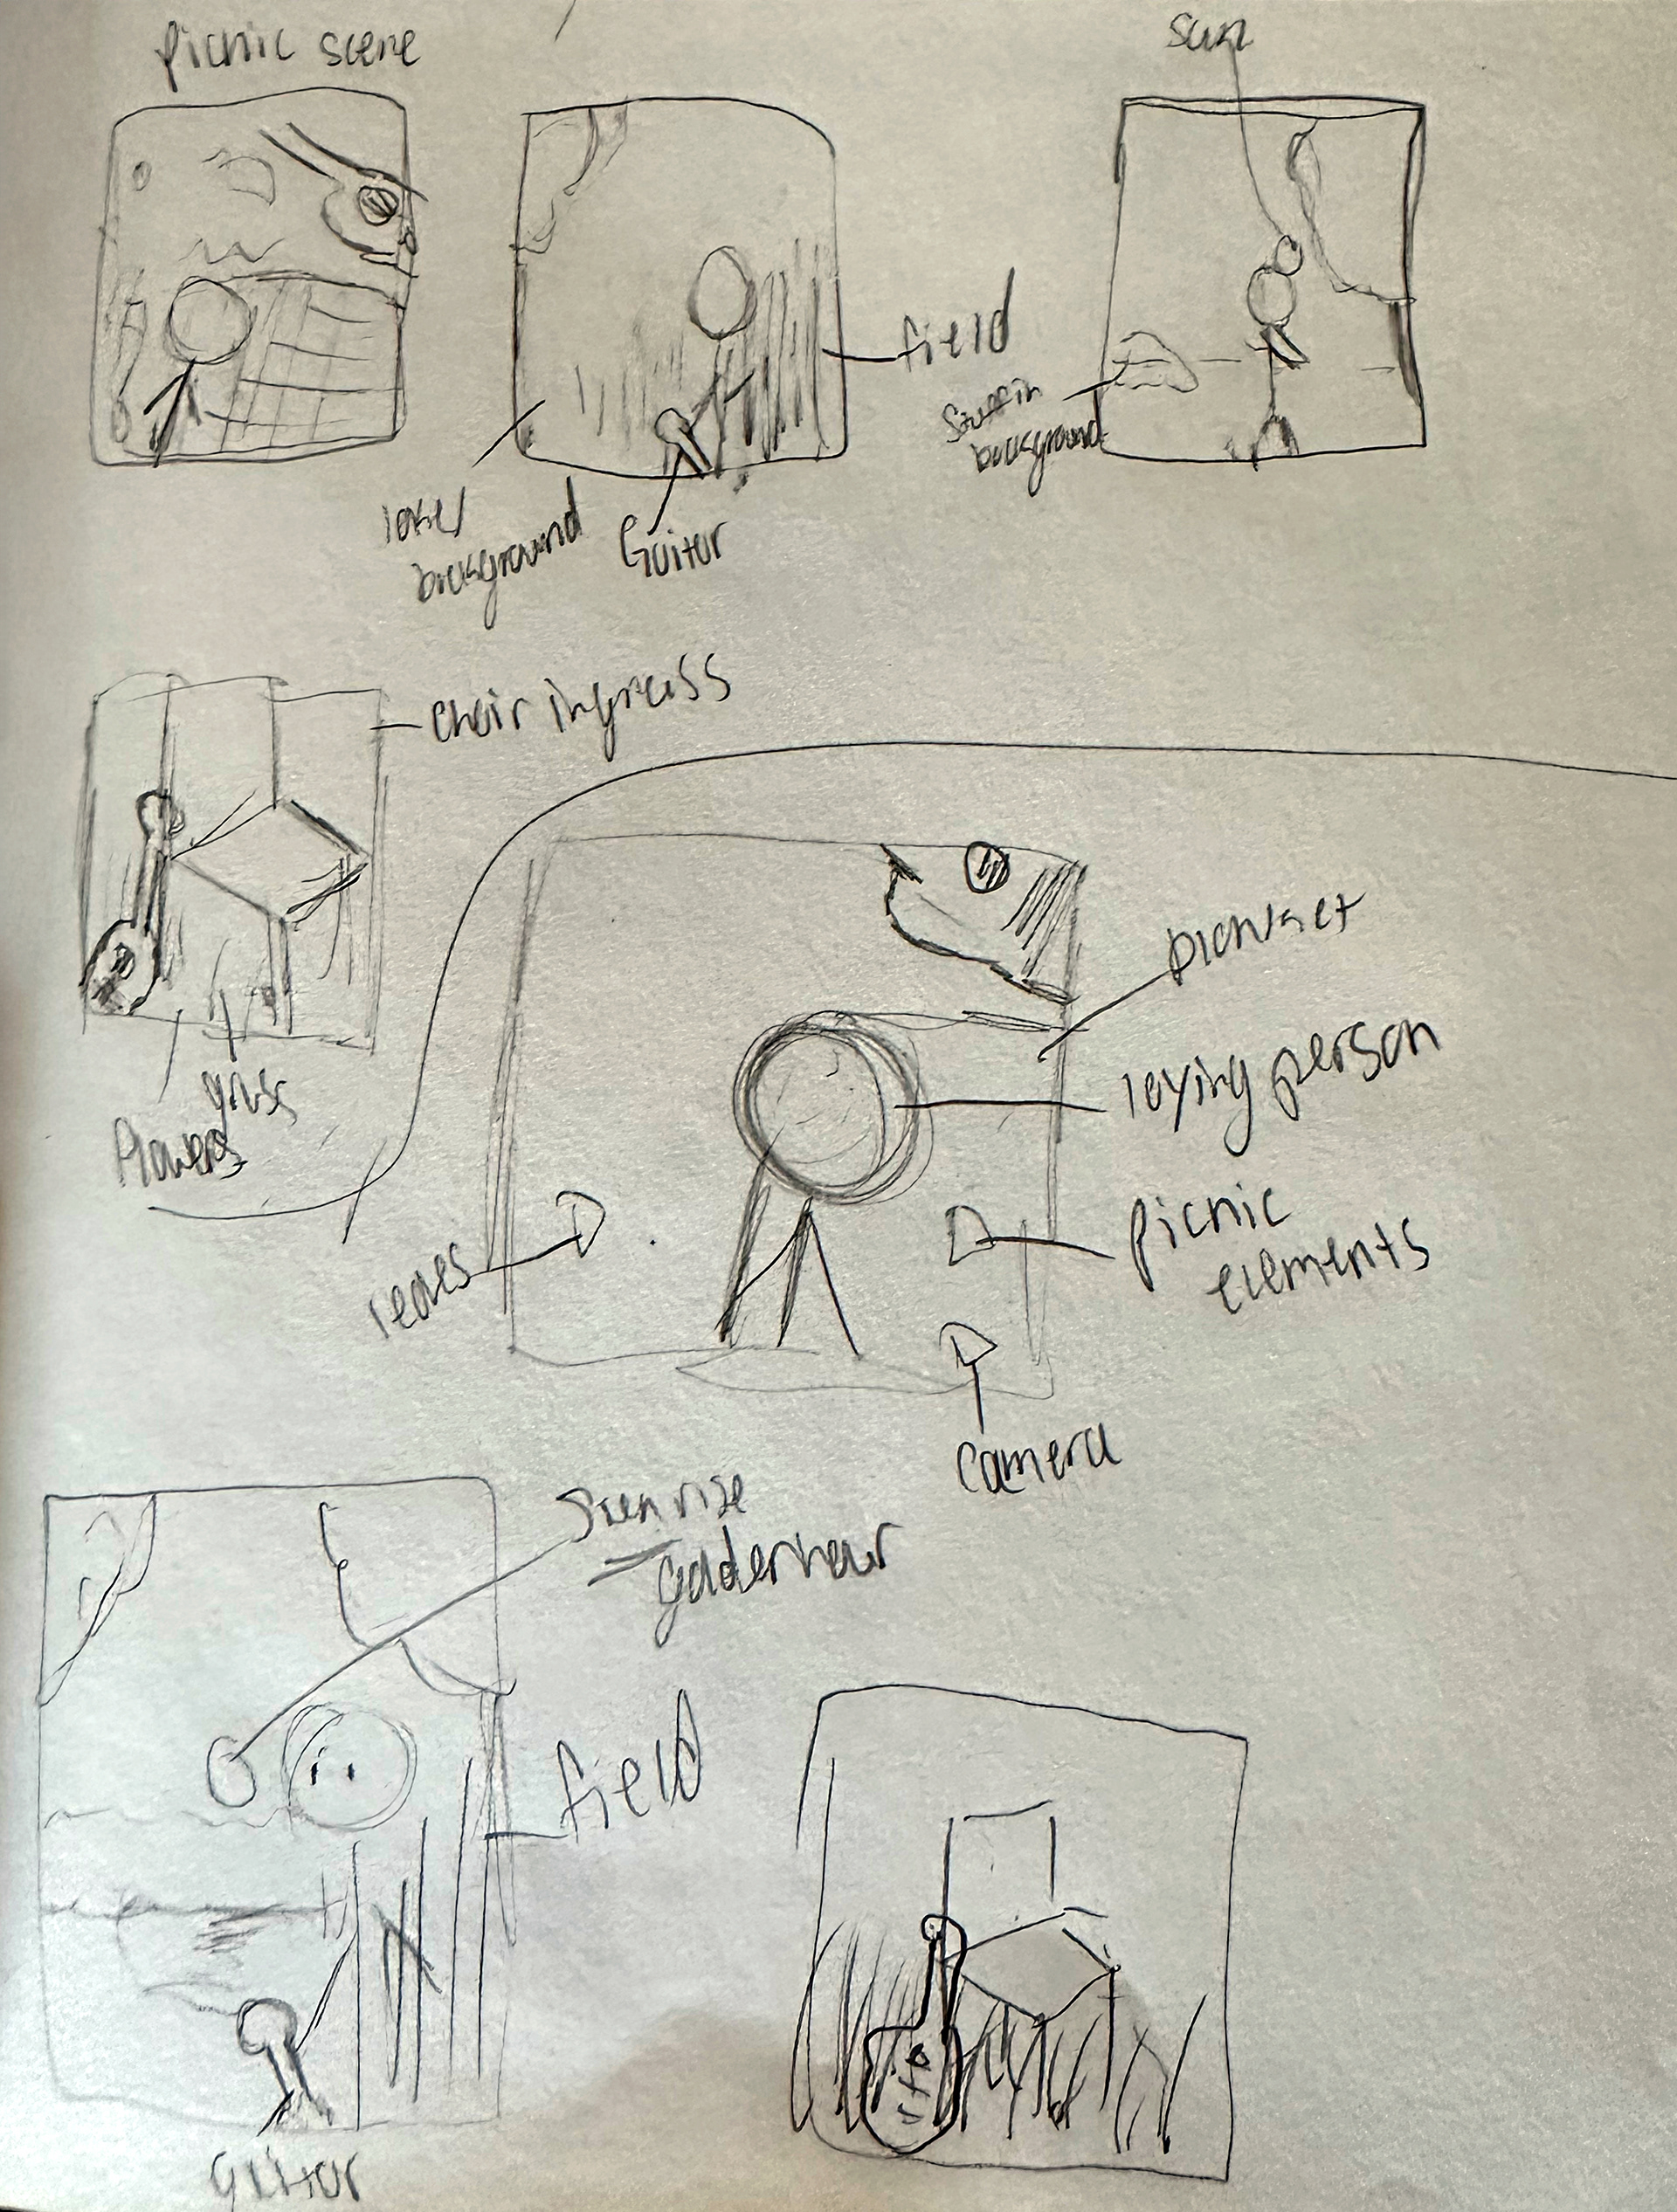 picnic scene
sun
field
Stuff in
background
background
Guitar
chair in grass
grass
flowers
laying person
picnic
elements
leaves
camera
Sun rise
field
guitar